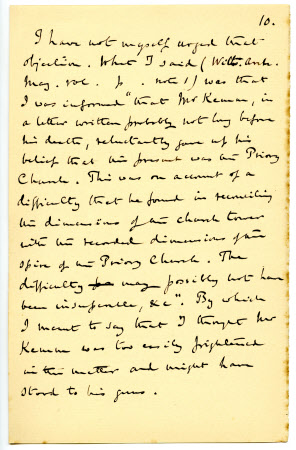 10.
I have not myself urged that
objection. What I said (Wilts. Arch.
Mag. vol. p. note 1) was that
I was informed "that Mr Kemm, in
a letter written probably not long before
his death, reluctantly gave up his
belief that the present was the Priory
Church. This was on account of a
difficulty that he found in reconciling
the dimensions of the church tower
with the recorded dimensions of the
spire of the Priory Church. The
difficulty may possibly not have
been insuperable, &c". By which
I meant to say that I thought Mr
Kemm was too easily frightened
in the matter and might have
stood to his guns.